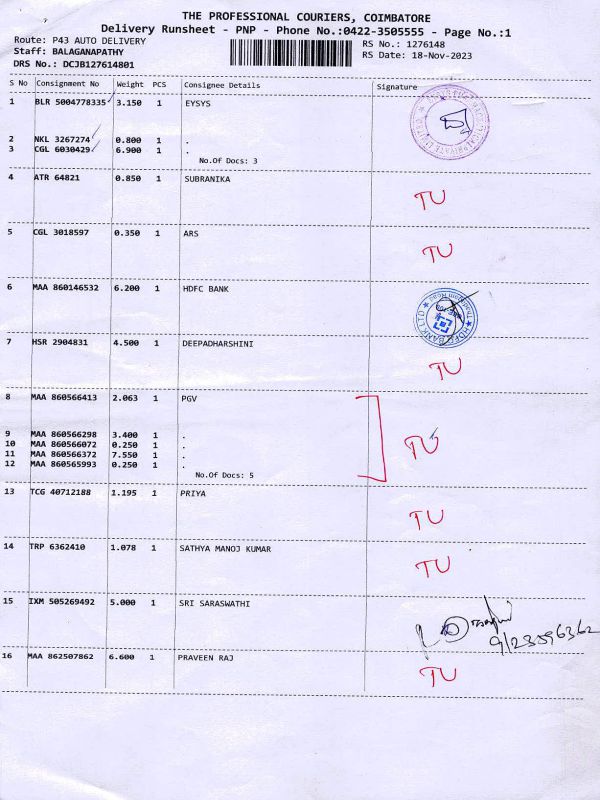 THE PROFESSIONAL COURIERS, COIMBATORE
Delivery Runsheet - PNP - Phone No.:0422-3505555 - Page No.:1
Route: P43 AUTO DELIVERY
RS No.: 1276148
Staff: BALAGANAPATHY
RS Date: 18-Nov-2023
DRS No.: DCJB127614801
S No Consignment No Weight PCS Consignee Details Signature
1 BLR 5004778335 3.150 1 EYSYS
2 NKL 3267274 0.800 1 .
3 CGL 6030429 6.900 1 .
No.Of Docs: 3
4 ATR 64821 0.850 1 SUBRANIKA
TU
5 CGL 3018597 0.350 1 ARS
TU
6 MAA 860146532 6.200 1 HDFC BANK
HDFC BANK LTD
7 HSR 2904831 4.500 1 DEEPADHARSHINI
TU
8 MAA 860566413 2.063 1 PGV
9 MAA 860566298 3.400 1 .
10 MAA 860566072 0.250 1 .
11 MAA 860566372 7.550 1 .
12 MAA 860565993 0.250 1 .
TU
No.Of Docs: 5
13 TCG 40712188 1.195 1 PRIYA
TU
14 TRP 6362410 1.078 1 SATHYA MANOJ KUMAR
TU
15 IXM 505269492 5.000 1 SRI SARASWATHI
9123596362
16 MAA 862507862 6.600 1 PRAVEEN RAJ
TU